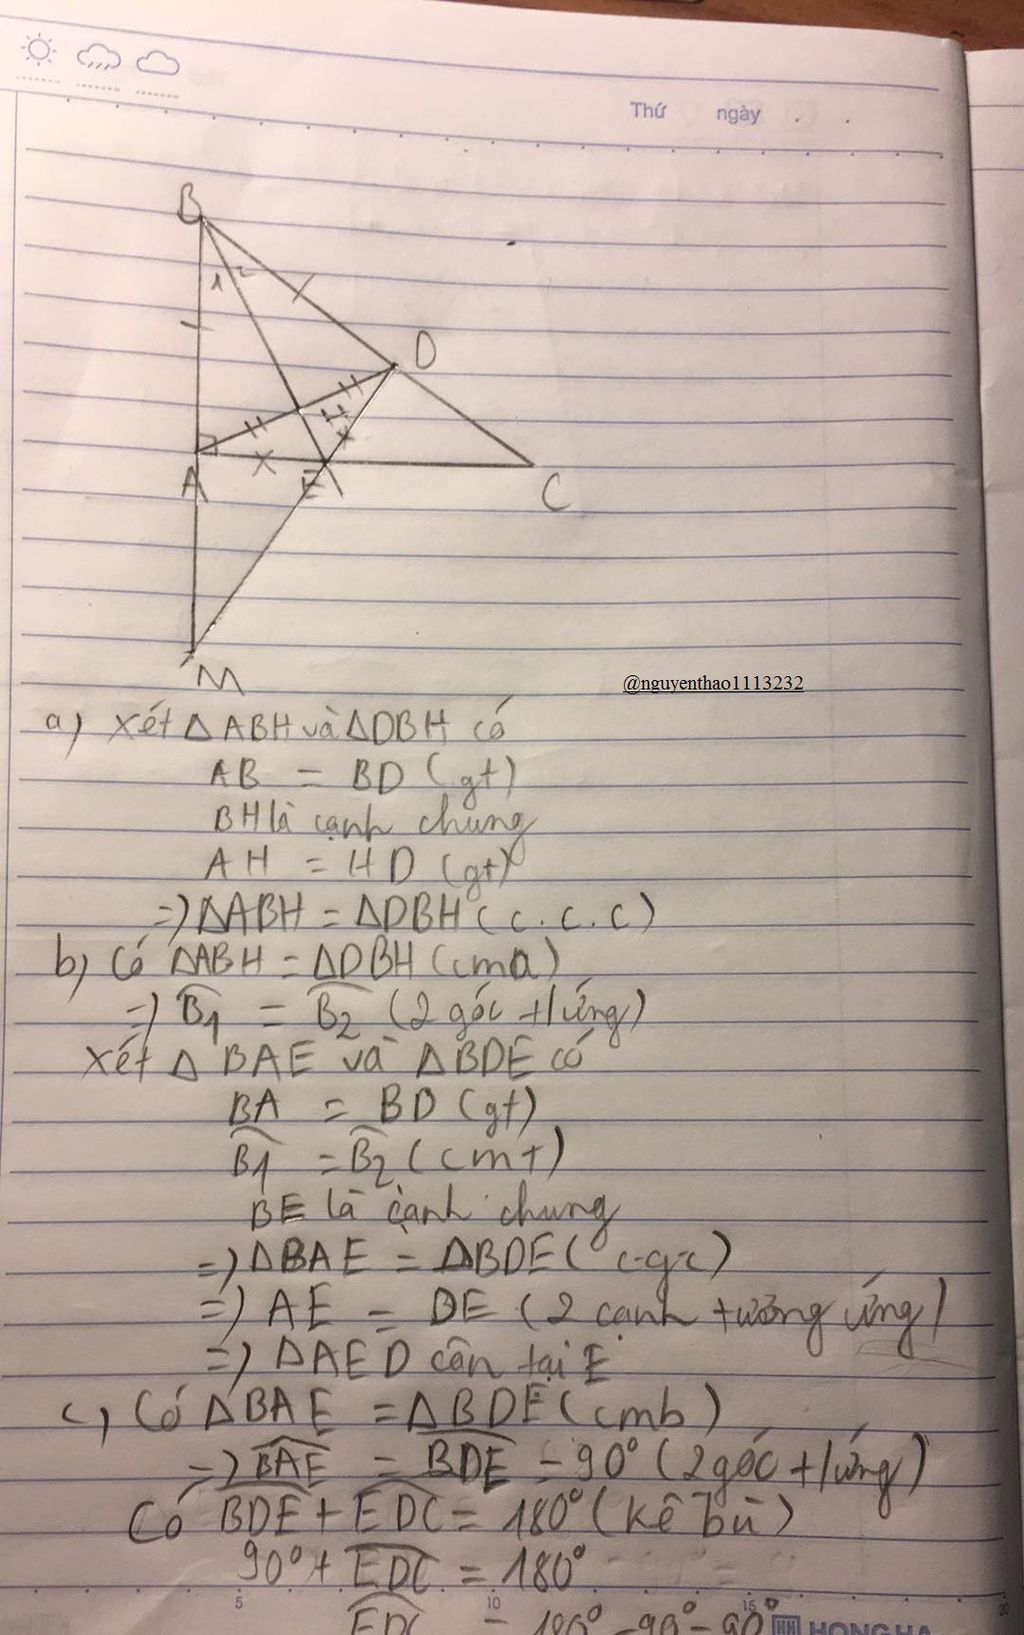 Thứ ngày
B
1 2
D
H
A
E
C
M
@nguyenthao1113232
a) Xét △ABH và △DBH có
AB = BD (gt)
BH là cạnh chung
AH = HD (gt)
=> △ABH = △DBH (c.c.c)
b) Có △ABH = △DBH (cma)
=> B̂1 = B̂2 (2 góc t/ứng)
Xét △BAE và △BDE có
BA = BD (gt)
B̂1 = B̂2 (cmt)
BE là cạnh chung
=> △BAE = △BDE (c-g-c)
=> AE = DE (2 cạnh tương ứng)
=> △AED cân tại E
c, Có △BAE = △BDE (cmb)
=> BAE = BDE = 90° (2 góc t/ứng)
Có BDE + EDC = 180° (kề bù)
90° + EDC = 180°
5 10 15 20
EDC = 180° - 90° = 90°
HONG HA